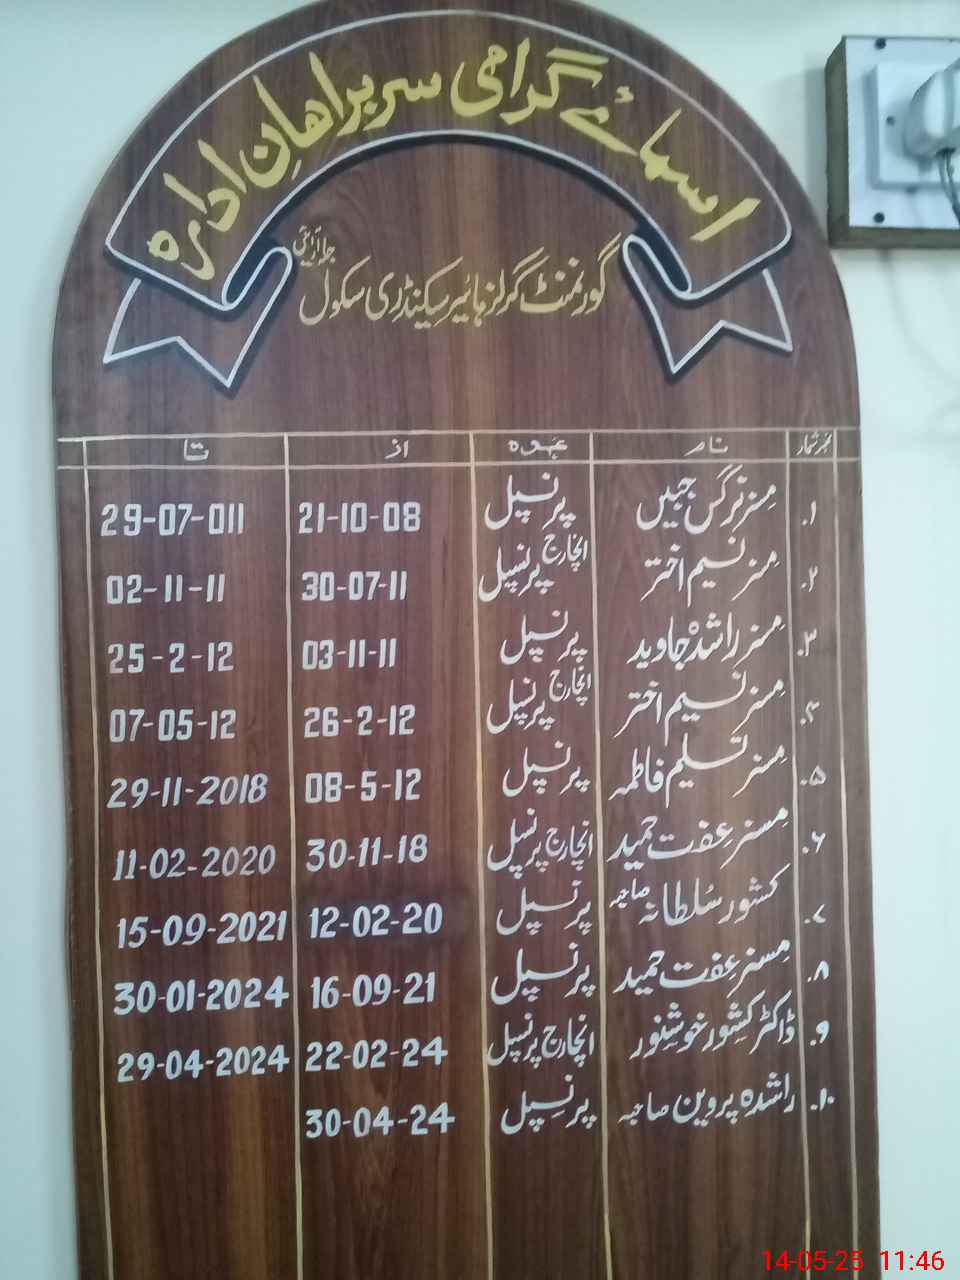 اسمائے گرامی سربراھانِ ادارہ
گورنمنٹ گرلز ہائیر سیکنڈری سکول
نمبر شمار نام عہدہ از تا
۱. مسز نرگس جبیں پرنسپل 21-10-08 29-07-011
۲. مسز نسیم اختر انچارج پرنسپل 30-07-11 02-11-11
۳. مسز راشدہ جاوید پرنسپل 03-11-11 25-2-12
۴. مسز نسیم اختر انچارج پرنسپل 26-2-12 07-05-12
۵. مسز تسلیم فاطمہ پرنسپل 08-5-12 29-11-2018
۶. مسز عفت حمید انچارج پرنسپل 30-11-18 11-02-2020
۷. کشور سُلطانہ صاحبہ پرنسپل 12-02-20 15-09-2021
۸. مسز عفت حمید پرنسپل 16-09-21 30-01-2024
۹. ڈاکٹر کشور خوشنور انچارج پرنسپل 22-02-24 29-04-2024
۱۰. راشدہ پروین صاحبہ پرنسپل 30-04-24
14-05-25 11:46